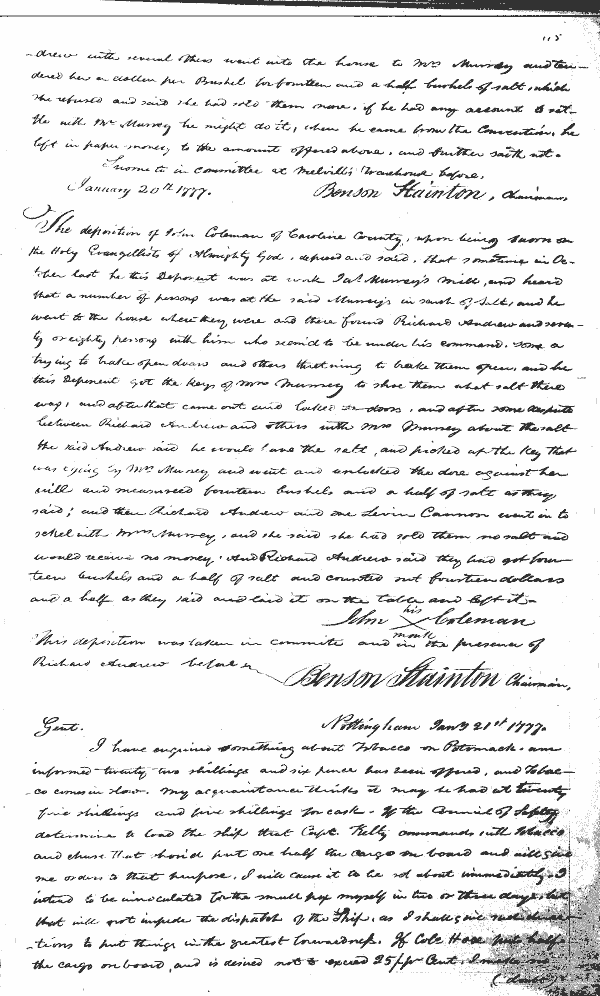 115
-drew with several others went into the house to Mrs Murrey and ten-
dered her a dollar per Bushel for fourteen and a half bushels of salt, which
she refused and said she had sold them none, if he had any account to set-
tle with Mr Murrey he might do it, when he came from the Convention. he
left in paper money to the amount offered above. and further saith not.
Sworn to in committee at Melvill's Warehouse before.
January 20th 1777.
Benson Stainton, Chairman
The deposition of John Coleman of Caroline County, upon being sworn on
the Holy Evangellists of Almighty God, deposed and said, that sometime in Oc-
tober last he this Deponent was at work Jas. Murrey's mill, and heard
that a number of persons was at the said Murrey's in search of salt, and he
went to the house where they were and there found Richard Andrew and seven-
ty or eighty persons with him who seemd to be under his command. some a
trying to brake open doors and others thretning to brake them open, and he
this Deponent got the keys of Mrs Murrey to shew them what salt there
was, and after that came out and locked doors, and after some dispute
between Richard Andrew and others with Mrs Murrey about the salt
the said Andrew said he would have the salt, and picked up the key that
was lying by Mrs Murrey and went and unlocked the dore against her
will and measured fourteen bushels and a half of salt as they
said; and then Richard Andrew and one Levin Cannon went in to
setel with Mrs Murrey, and she said she had sold them no salt and
would receive no money. And Richard Andrew said they had got four-
teen bushels and a half of salt and counted out fourteen dollars
and a half as they said and laid it on the table and left it.
John his X mark Coleman
This deposition was taken in committe and in the presence of
Richard Andrew before
Benson Stainton Chairman,
Nottingham Jany 21st 1777.
Gent.
I have enquired something about Tobacco on Potomack. am
informed twenty two shillings and six pence has been offered, and Tobac-
-co comes in slow. My acquaintance thinks it may be had at twenty
five shillings and five shillings for cask. If the Council of Safety
determine to load the ship that Capt. Kelly commands with Tobacco
and chuse that should put one half the cargo on board and will give
me orders to that purpose, I will cause it to be set about immediately. I
intend to be innoculated for the small pox myself in two or three days, but
that will not impede the dispatch of the Ship, as I shall give such direc-
-tions to put things in the greatest forwardness. If Colo Hooe puts half
the cargo on board, and is desired not to exceed 25/ pr Cent. I make no
(doubt)